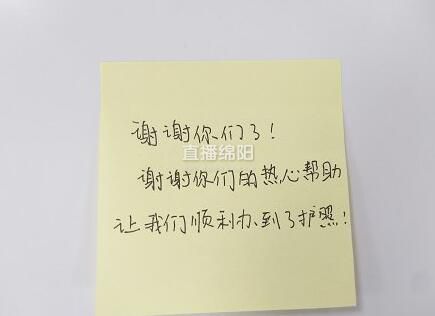 谢谢你们了！
直播绵阳
谢谢你们的热心帮助
让我们顺利办到了护照！